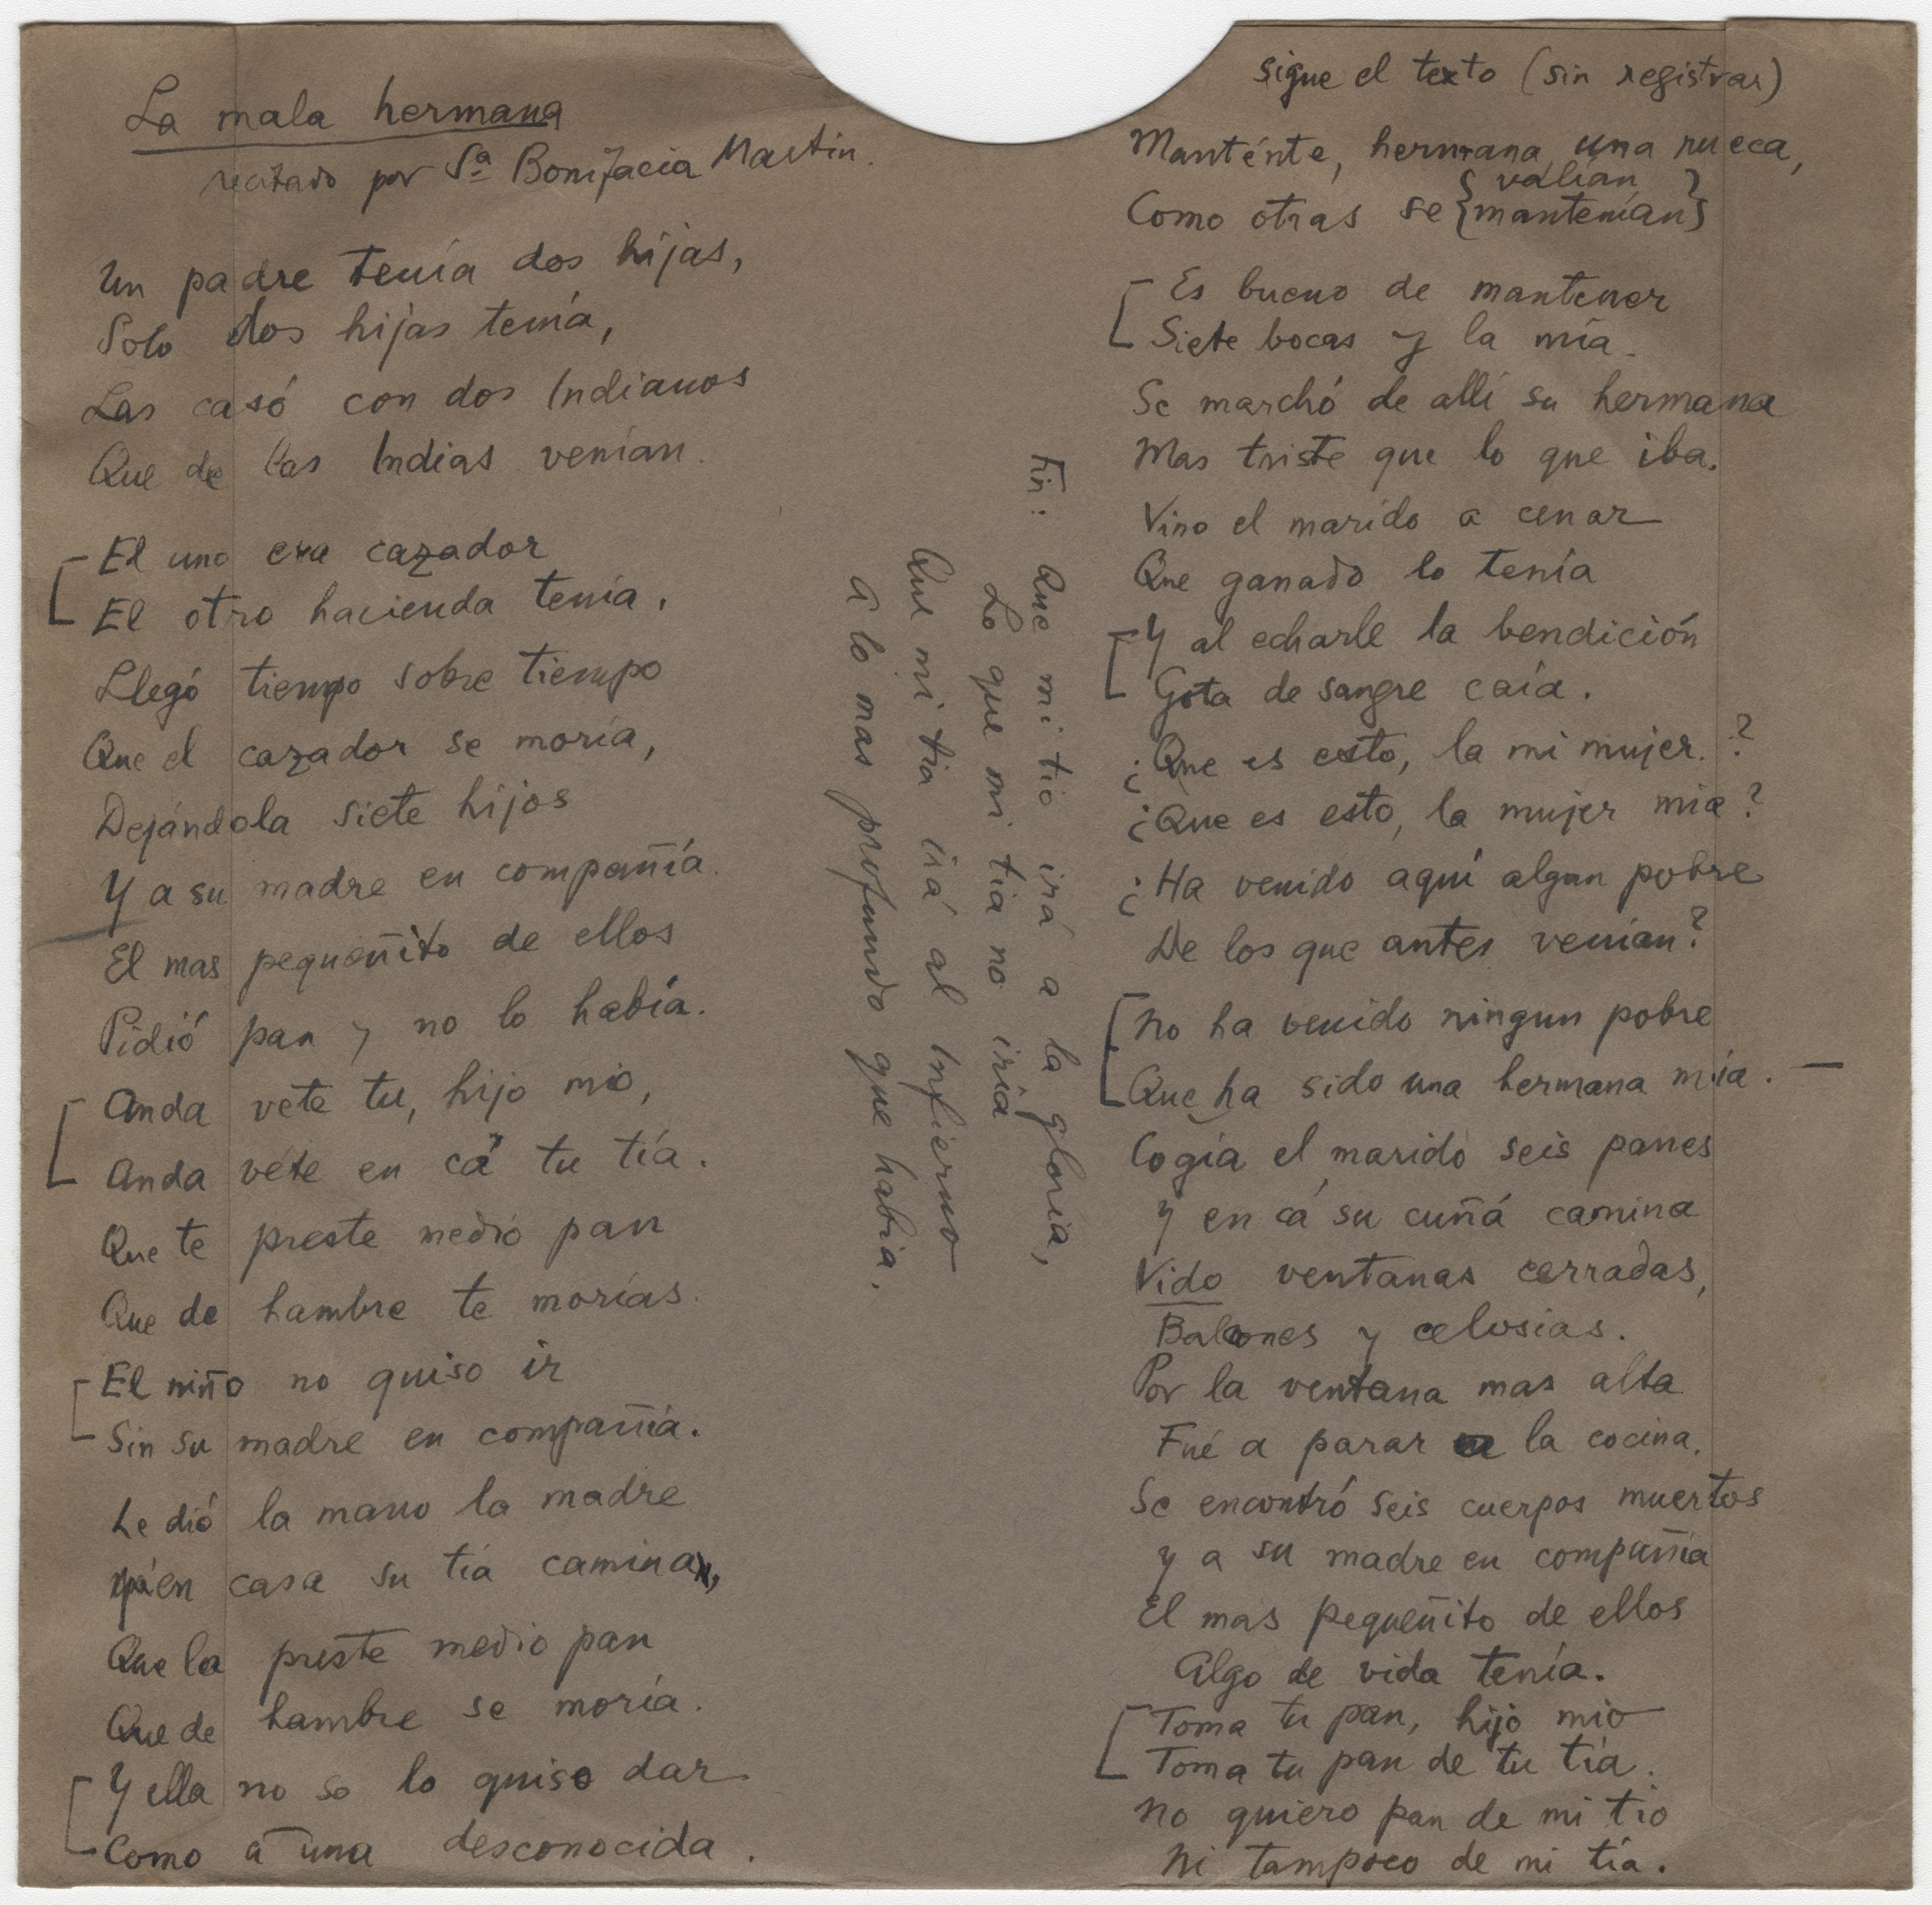 La mala hermana
recitado por Sª Bonifacia Martin.
Un padre tenía dos hijas,
Solo dos hijas tenía,
Las casó con dos Indianos
Que de las Indias venían.
El uno era cazador
El otro hacienda tenía.
Llegó tiempo sobre tiempo
Que el cazador se moría,
Dejándola siete hijos
Y a su madre en compañía.
El mas pequeñito de ellos
Pidió pan y no lo había.
Anda vete tu, hijo mio,
Anda véte en cá tu tía.
Que te preste medio pan
Que de hambre te morías.
El niño no quiso ir
Sin su madre en compañía.
Le dió la mano la madre
en casa su tía caminan,
Que la preste medio pan
Que de hambre se moría.
Y ella no se lo quiso dar
Como a una desconocida.
sigue el texto (sin registrar)
Manténte, hermana, una rueca,
valían
Como otras se {mantenían}
Es bueno de mantener
Siete bocas y la mía.
Se marchó de allí su hermana
Mas triste que lo que iba.
Vino el marido a cenar
Que ganado lo tenía
Y al echarle la bendición
Gota de sangre caía.
¿Que es esto, la mi mujer.?
¿Que es esto, la mujer mia?
¿Ha venido aquí algun pobre
De los que antes venían?
No ha venido ningun pobre
Que ha sido una hermana mía. —
Cogía el marido seis panes
Y en cá su cuñá camina
Vido ventanas cerradas,
Balcones y celosias.
Por la ventana mas alta
Fué a parar a la cocina.
Se encontró seis cuerpos muertos
Y a su madre en compañía
El mas pequeñito de ellos
Algo de vida tenía.
Toma tu pan, hijo mio
Toma tu pan de tu tía.
No quiero pan de mi tio
Ni tampoco de mi tía.
Fin: Que mi tio irá a la gloria,
Lo que mi tia no iría
Que mi tia irá al Infierno
A lo mas profundo que habia.